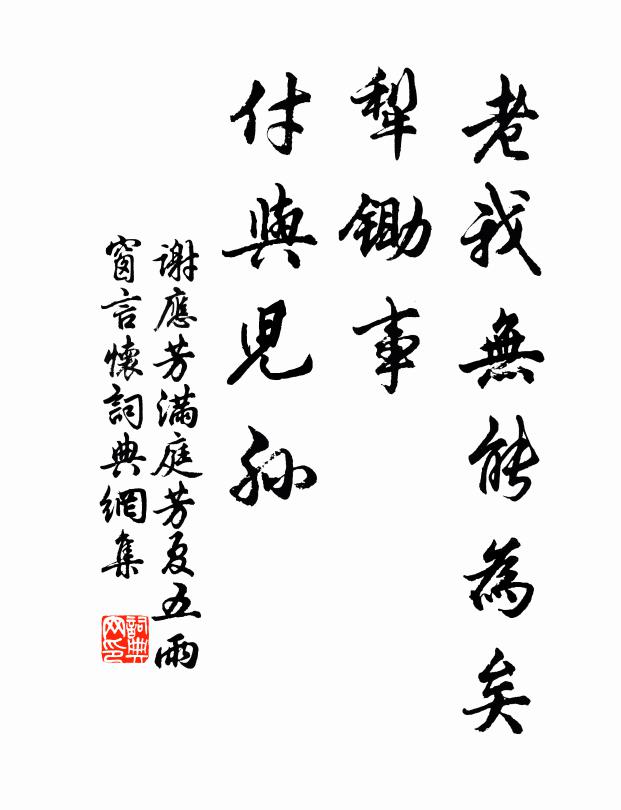 老我無能為矣
犁鋤事
付與兒孫
謝應芳滿庭芳夏五雨
窗言懷詞典網集
詞典
网印